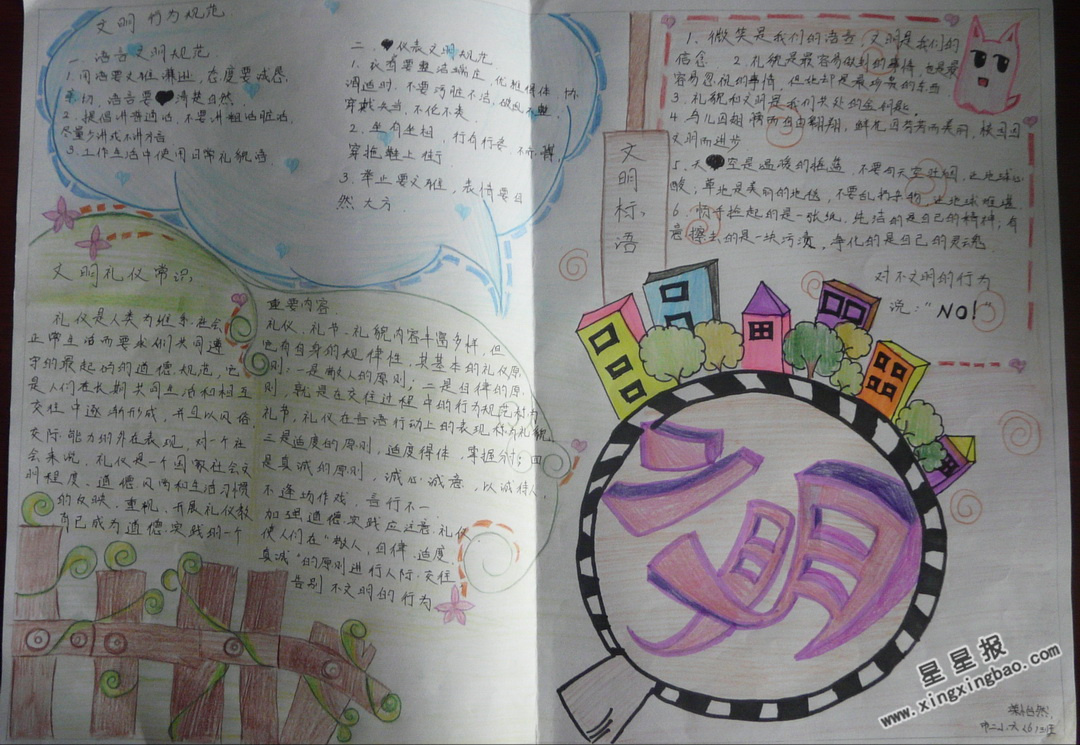 文明 行为规范
一. 语言文明规范
1. 用语要文雅
2. 提倡讲普通话, 不要讲粗话脏话
尽量少讲或不讲方言
3. 工作生活中使用日常礼貌语
二. 仪表文明规范
1. 衣着要整洁端庄
穿戴
2. 坐有坐相, 行有行姿
穿拖鞋上街
3. 举止要文雅, 表情要自
然大方
文明礼仪常识
礼仪是人类为维系社会
正常生活而要求人们共同遵
守的最起码的道德规范, 它
是人们在长期共同生活和相互
交往中逐渐形成, 并且以风俗
交际能力的外在表现, 对一个社
会来说, 礼仪是一个国家社会文
明程度、道德风尚和生活习惯
的反映. 重视、开展礼仪教
育已成为道德实践的一个
重要内容.
礼仪、礼节、礼貌内容丰富多样, 但
它有自身的规律性, 其基本的礼仪原
则: 一是敬人的原则; 二是自律的原
则, 就是在交往过程中的行为规范称为
礼节, 礼仪在言语行动上的表现称为礼貌
三是适度的原则, 适度得体, 掌握分寸; 四
是真诚的原则, 诚心诚意, 以诚待人,
不逢场作戏, 言行不一.
加强道德实践应注意礼仪
使人们在“敬人、自律、适度、
真诚”的原则进行人际交往
告别不文明的行为
文明标语
1. 微笑是我们的语言, 文明是我们的
信念. 2. 礼貌是最容易做到的事情, 也是最
容易忽视的事情, 但她却是最珍贵的东西
3. 礼貌和文明是我们共处的金钥匙.
4. 鸟儿因翅膀而自由翱翔, 鲜花因芬芳而美丽, 校园因
文明而进步
5. 天空是温暖的摇篮, 不要向天空吐烟
草地是美丽的地毯, 不要乱扔杂物
6. 弯腰捡起的是一张纸, 纯洁的是自己的精神, 有
意擦去的是一块污渍, 净化的是自己的灵魂
对不文明的行为
说: “NO!”
文明
星星报
www.xingxingbao.com